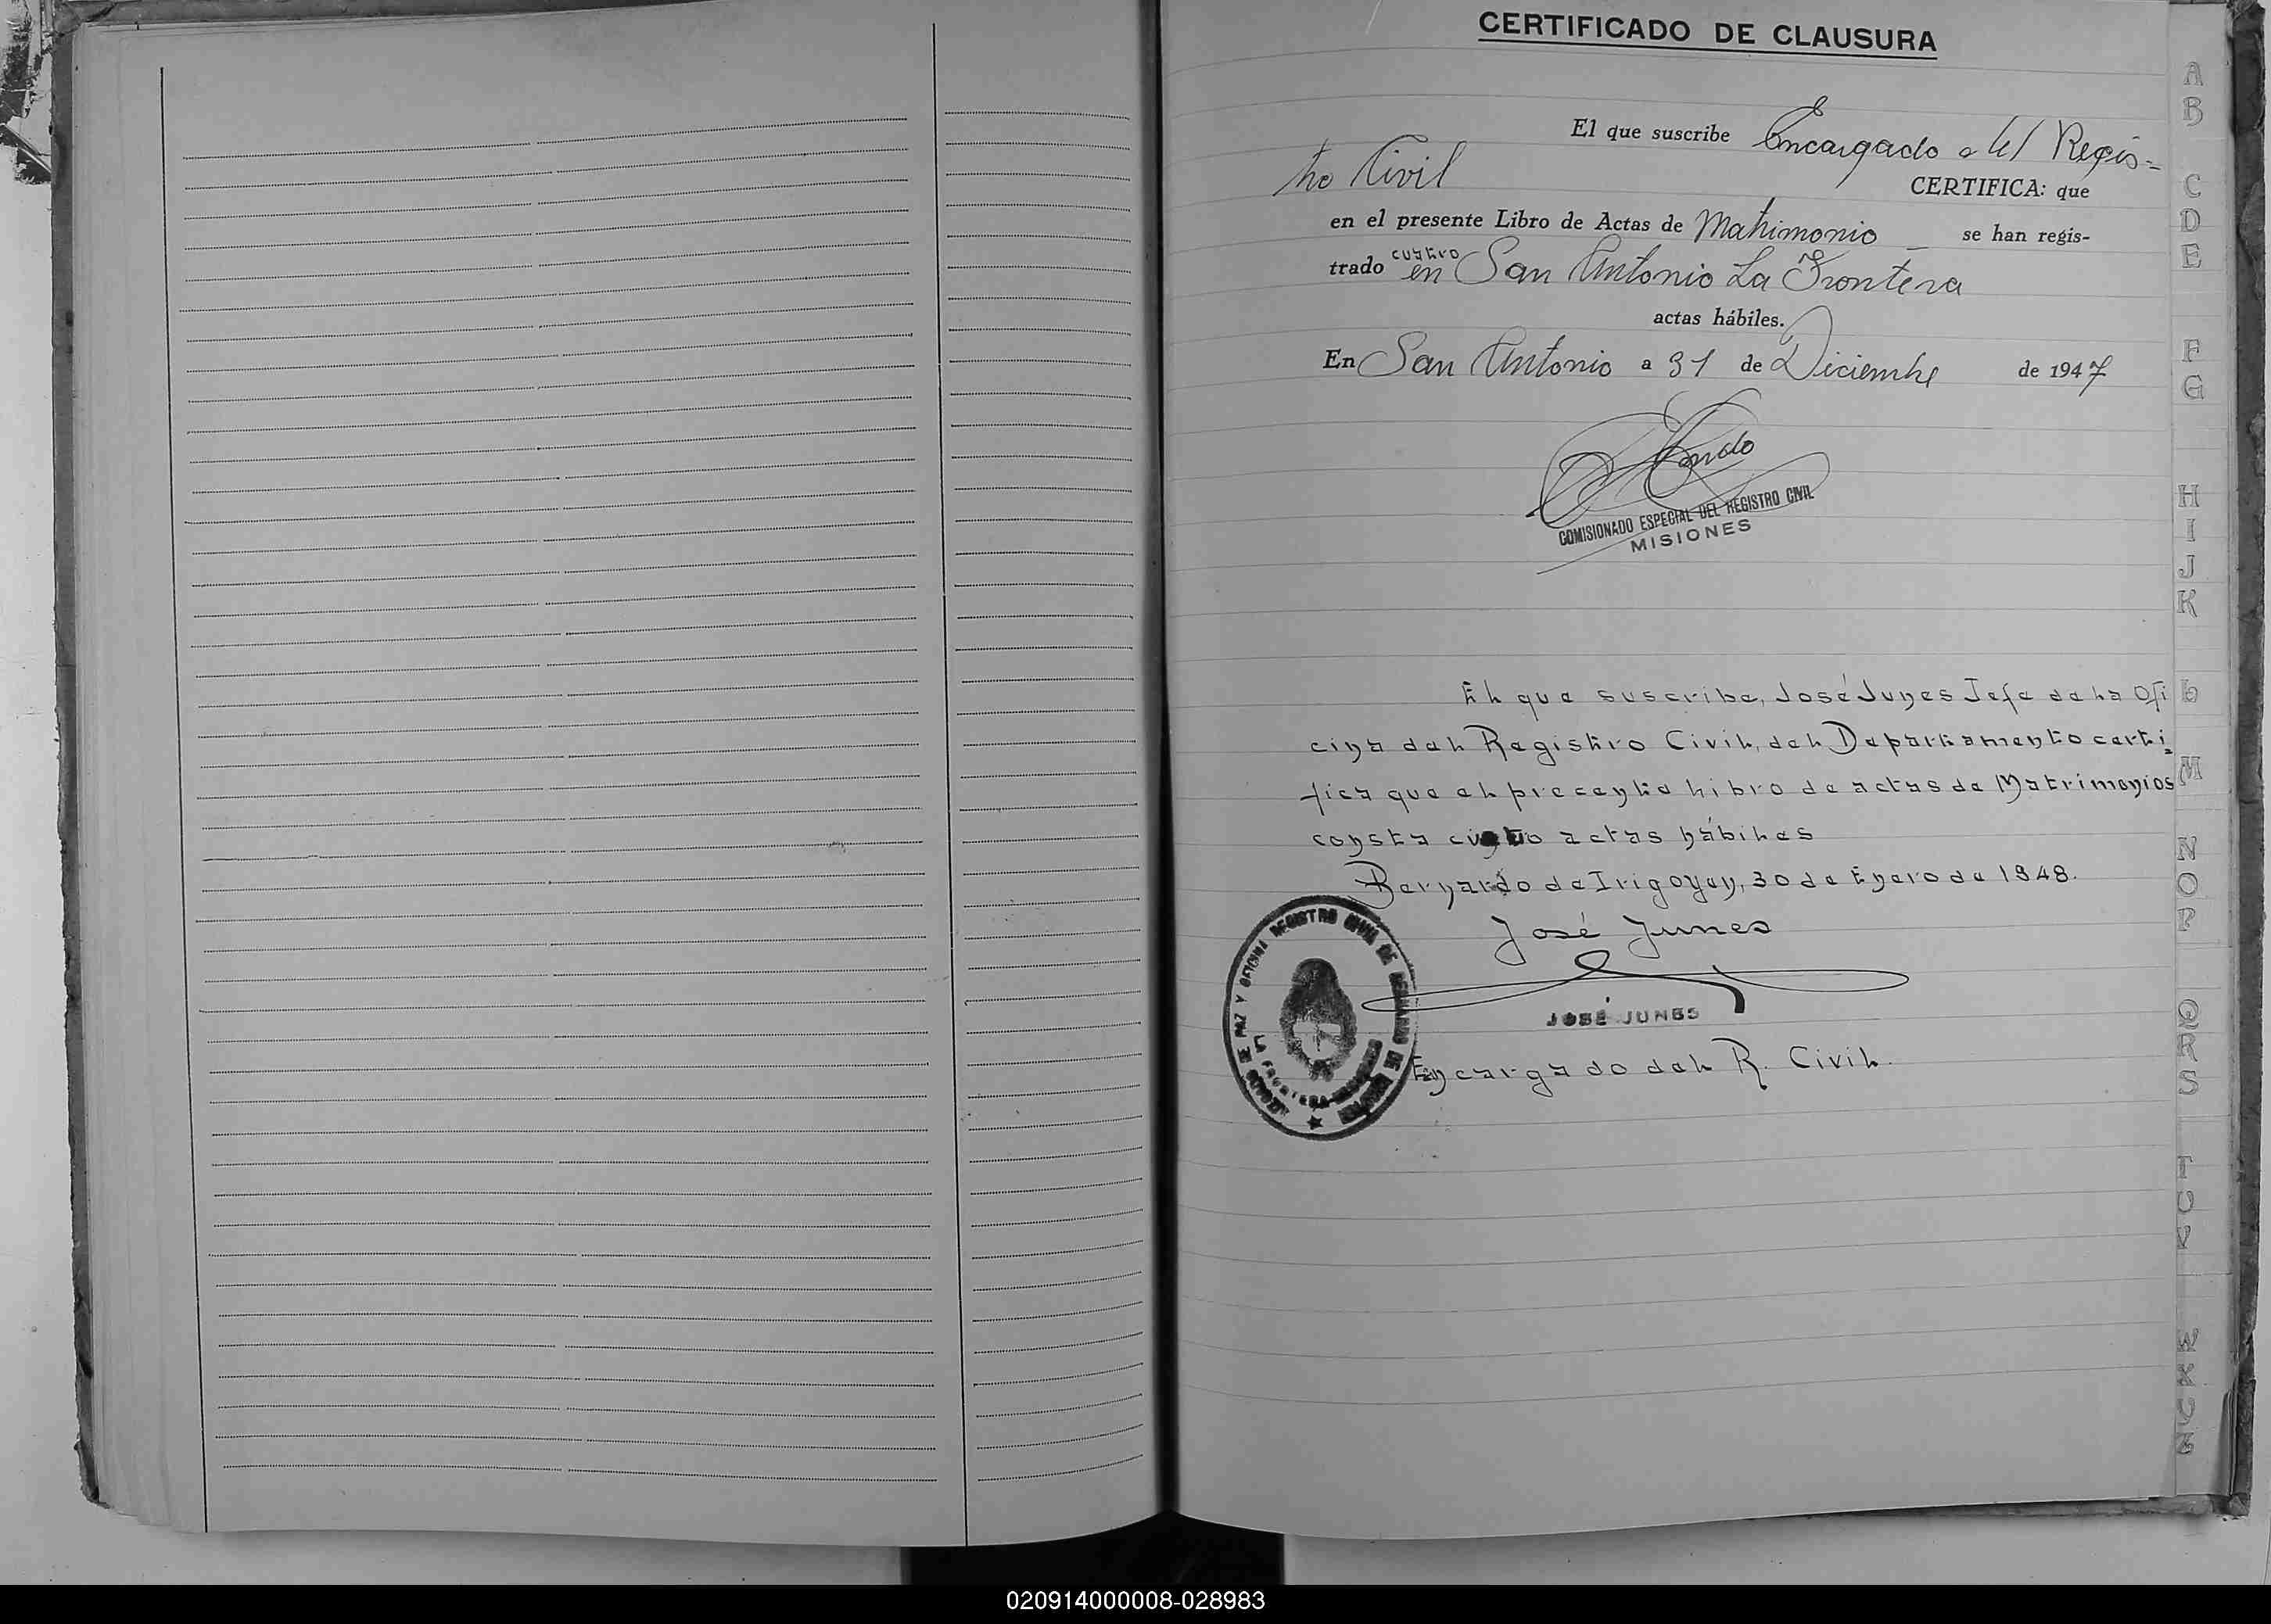 CERTIFICADO DE CLAUSURA
El que suscribe Encargado del Regis=
tro Civil
CERTIFICA: que
en el presente Libro de Actas de Matrimonio _ se han regis-
cuatro
trado en San Antonio La Frontera
actas hábiles.
En San Antonio a 31 de Diciembre de 1947
COMISIONADO ESPECIAL DEL REGISTRO CIVIL
MISIONES
El que suscribe, José Junes Jefe de la Ofi
cina del Registro Civil, del Departamento certi=
fica que el precente libro de actas de Matrimonios
consta cuatro actas hábiles
Bernardo de Irigoyen, 30 de Enero de 1948.
José Junes
JOSÉ JUNES
Encargado del R. Civil.
DE PAZ Y OFICINA REGISTRO CIVIL DE BERNARDO DE IRIGOYEN
LA FRONTERA - MISIONES
A
B
C
D
E
F
G
H
I
J
K
L
M
N
O
P
Q
R
S
T
U
V
W
X
Y
Z
020914000008-028983